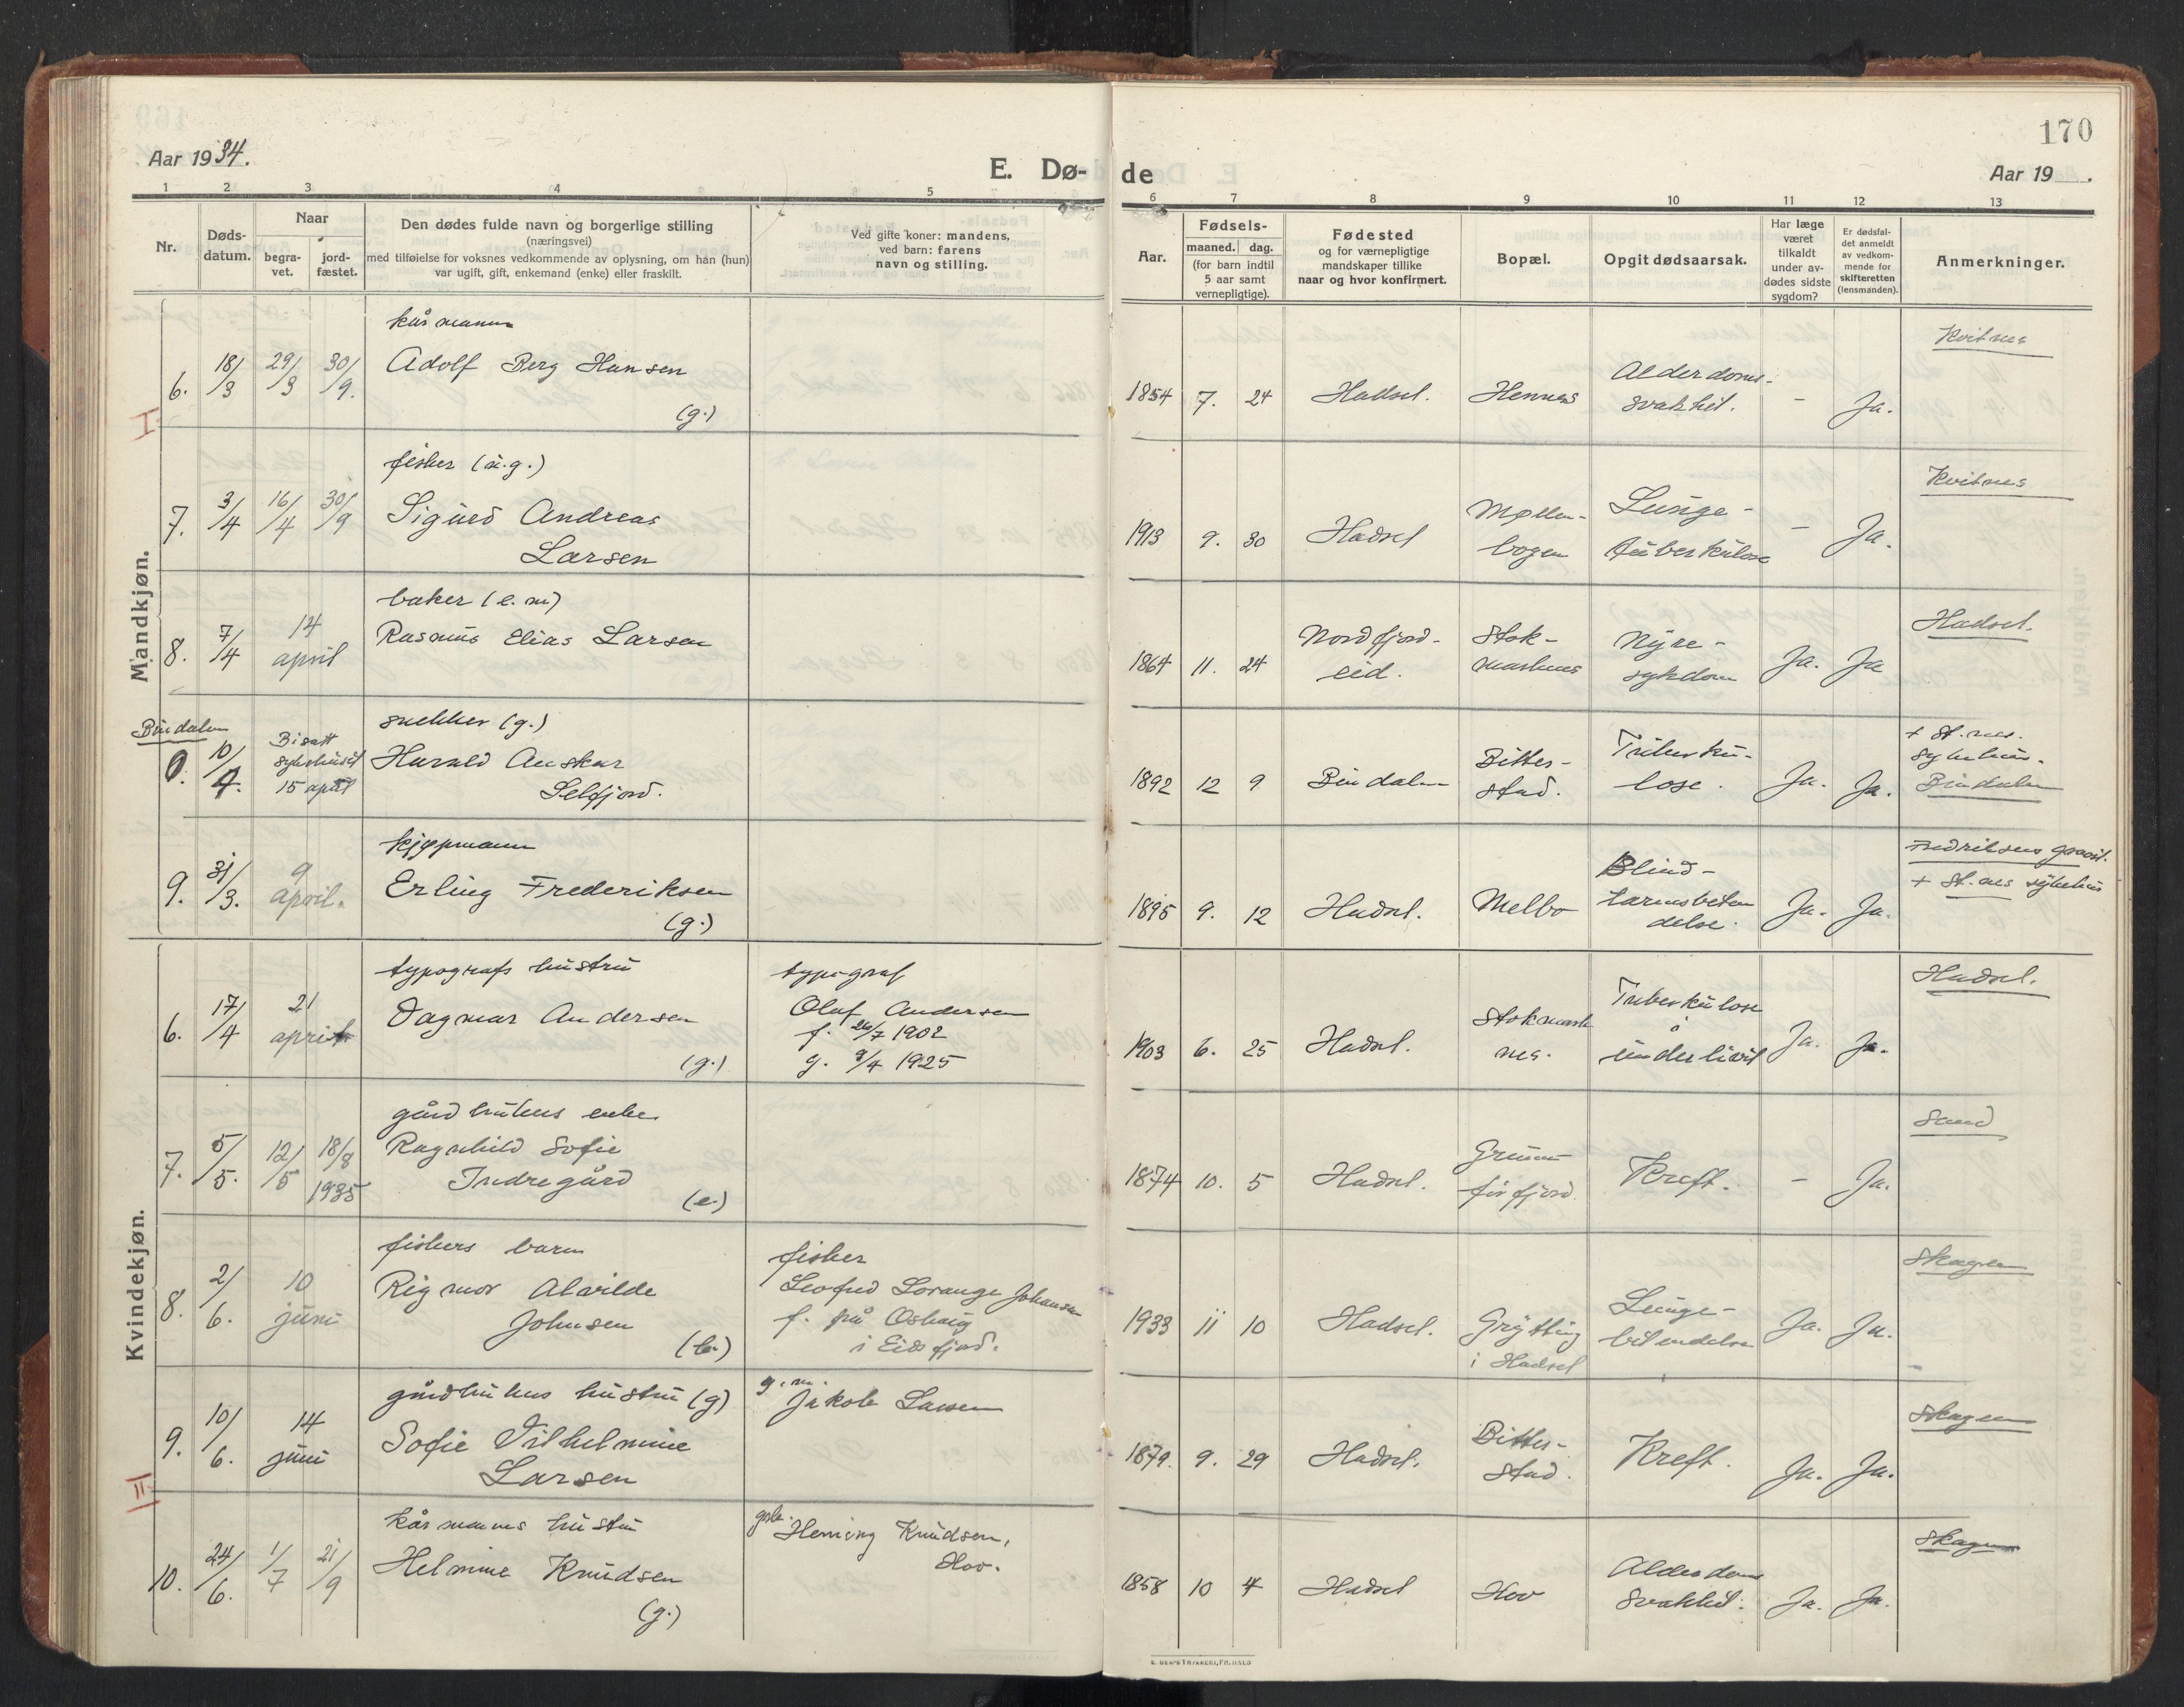 170
Aar 1934.
E. Dø-
de
Aar 19 .
1 2 3 4 5
6 7 8 9 10 11 12 13
Nr.
Døds-
datum.
Naar
begra-
vet.
jord-
fæstet.
Den dødes fulde navn og borgerlige stilling
(næringsvei)
med tilføielse for voksnes vedkommende av oplysning, om han (hun)
var ugift, gift, enkemand (enke) eller fraskilt.
Ved gifte koner: mandens,
ved barn: farens
navn og stilling.
Aar.
Fødsels-
maaned. dag.
(for barn indtil
5 aar samt
vernepligtige).
Fødested
og for værnepligtige
mandskaper tillike
naar og hvor konfirmert.
Bopæl.
Opgit dødsaarsak.
Har læge
været
tilkaldt
under av-
dødes sidste
sygdom?
Er dødsfal-
det anmeldt
av vedkom-
mende for
skifteretten
(lensmanden).
Anmerkninger.
Mandkjøn.
I
kårmann
6. 18/3 29/3 30/9. Adolf Berg Hansen
(g.)
1854 7. 24 Hadsel. Hennes
Alderdoms-
svakhet. - Ja.
Kvitnes
fisker (u.g.)
7. 3/4 16/4 30/9 Sigurd Andreas
Larsen
1913 9. 30 Hadsel
Møllen-
bogen
Lunge-
tuberkulose - Ja.
Kvitnes
baker (e.m)
8. 7/4 14
april
Rasmus Elias Larsen
1864 11. 24
Nordfjord-
eid.
Stok-
marknes
Nyre-
sykdom
Ja. Ja
Hadsel.
Bindalen
snekker (g.)
0. 10/4.
Bisatt
sykehuset
15 april
Harald Anskar
Selfjord.
1892 12 9 Bindalen
Bitter-
stad.
Tuberku-
lose.
Ja. Ja.
+ St.nes.
sykehus.
Bindalen
kjøpmann
9. 31/3. 9
april.
Erling Frederiksen
(g.)
1895 9. 12 Hadsel. Melbo
Blind-
tarmsbeten
delse.
Ja. Ja.
Fredriksens gravst.
+ St.nes sykehus
Kvindekjøn.
typografs hustru
6. 17/4 21
april
Dagmar Andersen
(g.)
typograf
Olaf Andersen
f. 26/7 1902
g. 9/4 1925
1903 6. 25 Hadsel.
Stokmark
nes.
Tuberkulose
i
underlivet
Ja. Ja.
Hadsel.
gårdbrukers enke
7. 5/5. 12/5 18/8
1935
Ragnhild Sofie
Indregård
(e.)
1874 10. 5 Hadsel.
Grunn
førfjord.
Kreft. - Ja.
Sand
fiskers barn
8. 2/6. 10
juni
Rigmor Alvilde
Johnsen
(b.)
fisker
Leofred Lorange Johansen
f. på Oshaug
i Eidsfjord.
1933 11 10 Hadsel.
Grytting
i Hadsel
Lunge-
betendelse
Ja. Ja.
Skagen
gårdbrukers hustru (g)
9. 10/6. 14
juni
Sofie Vilhelmine
Larsen
g.m.
Jakob Larsen
1879. 9. 29 Hadsel.
Bitter-
stad.
Kreft.
Ja. Ja.
Skagen
II
kårmanns hustru
10. 24/6. 1/7 21/9 Helmine Knudsen
(g.)
Heming Knudsen,
Hov.
1858 10 4 Hadsel Hov
Alderdoms
svakhet.
Ja. Ja.
Skagen